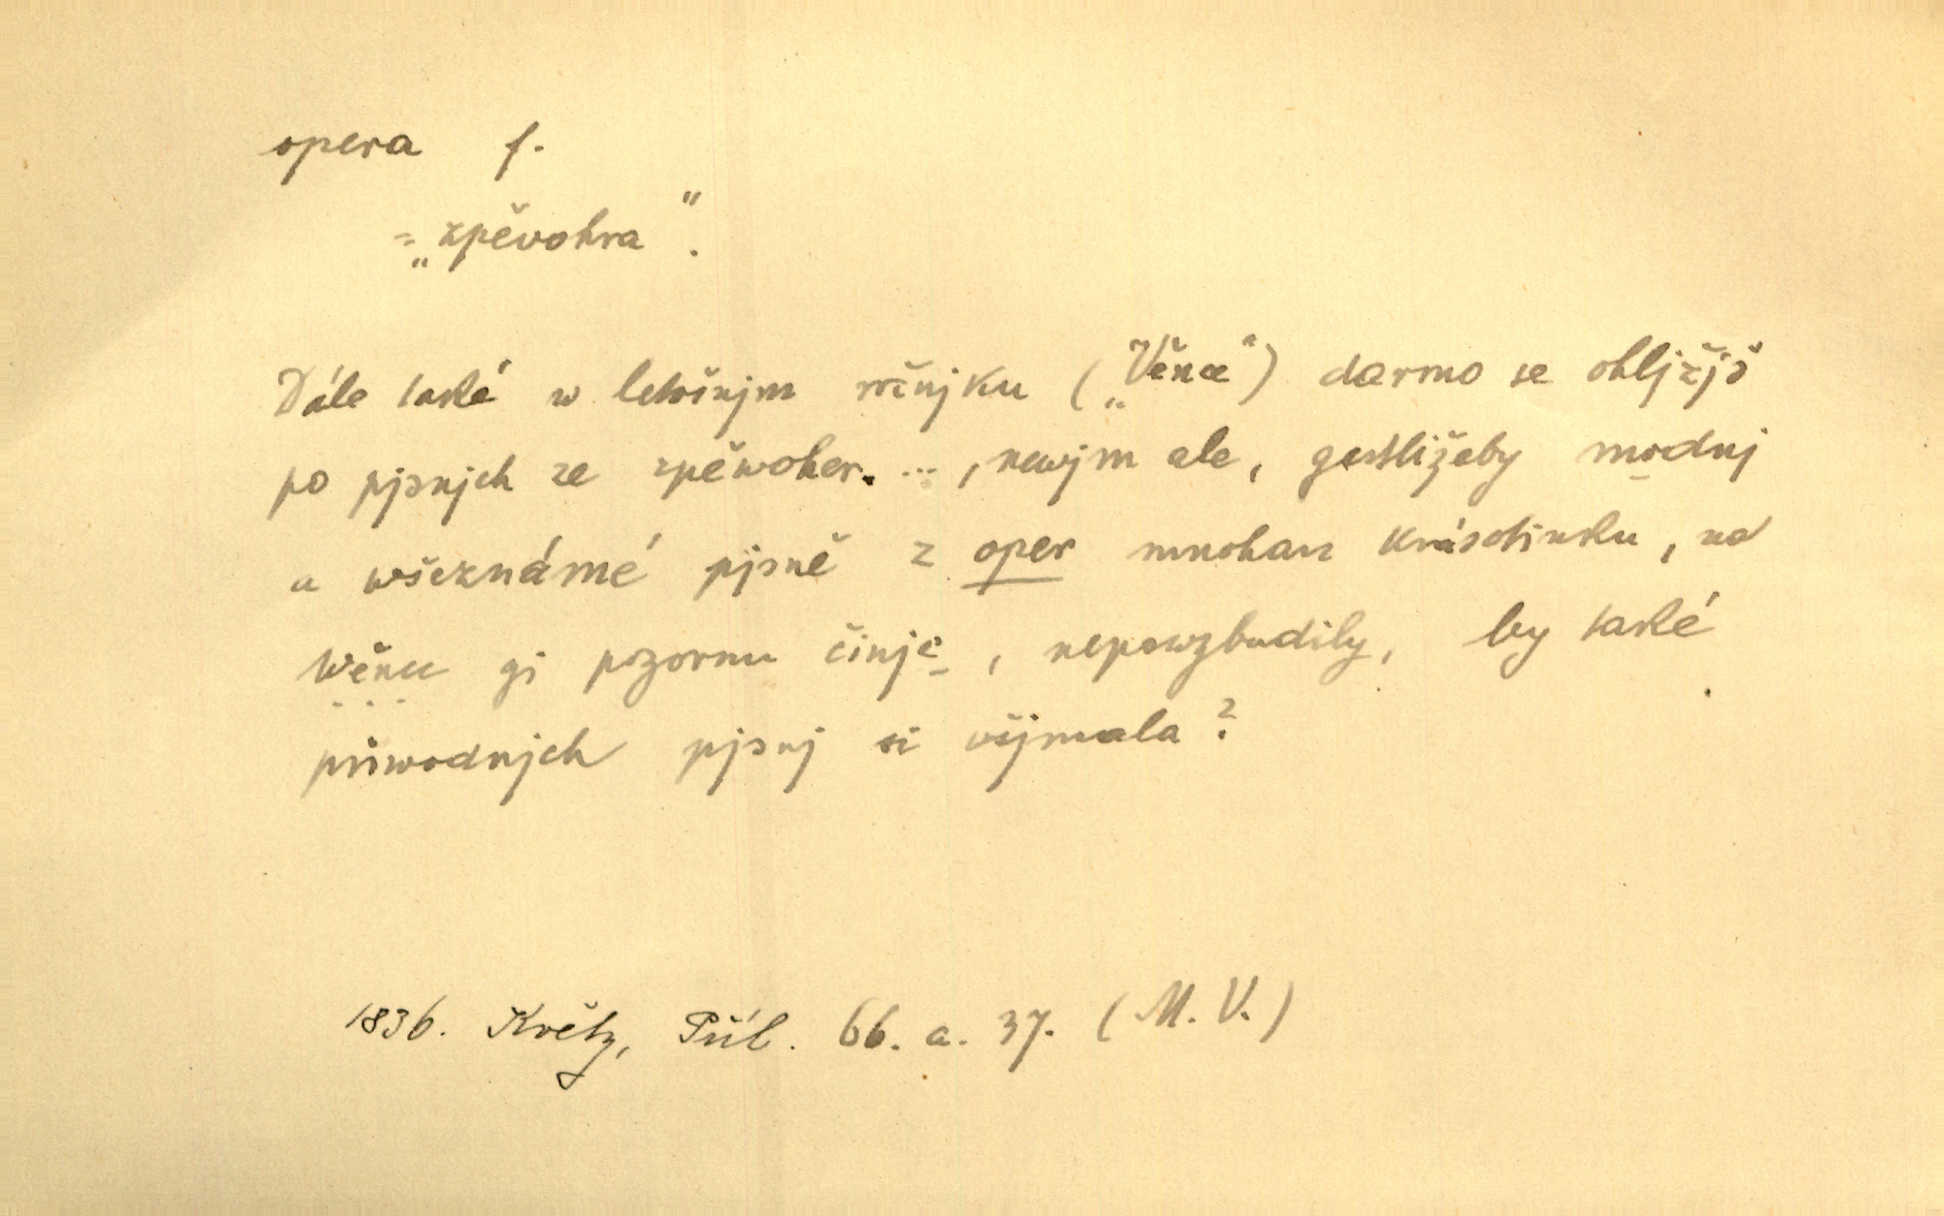 opera f.
= „zpěvohra“.
Dále také w letošnjm ročnjku („Věnce“) darmo se ohljžjš
po pjsnjch ze zpěwoher. ..., newjm ale, gestližeby modnj
a wšeznámé pjsně z oper mnohau krásotinku, na
wěnec gi pozornu činjc, nepowzbudily, by také
půwodnjch pjsnj si všjmala?
1836. Květy, Příl. 66. a. 37. (M. V.)